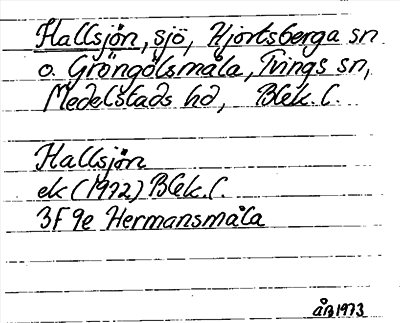 Hallsjön, sjö, Hjortsberga sn
o. Gröngölsmåla, Tvings sn,
Medelstads hd, Blek. l.
Hallsjön
ek (1972) Blek. l.
3F 9e Hermansmåla
ÅB 1973